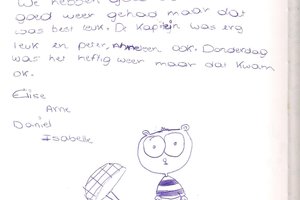 We hebben
goed weer gehad maar dat
was best leuk. De kapitein was erg
leuk en peter, ook. Donderdag
was het heftig weer maar dat kwam
ok.
Elise
Arne
Daniel
Isabelle